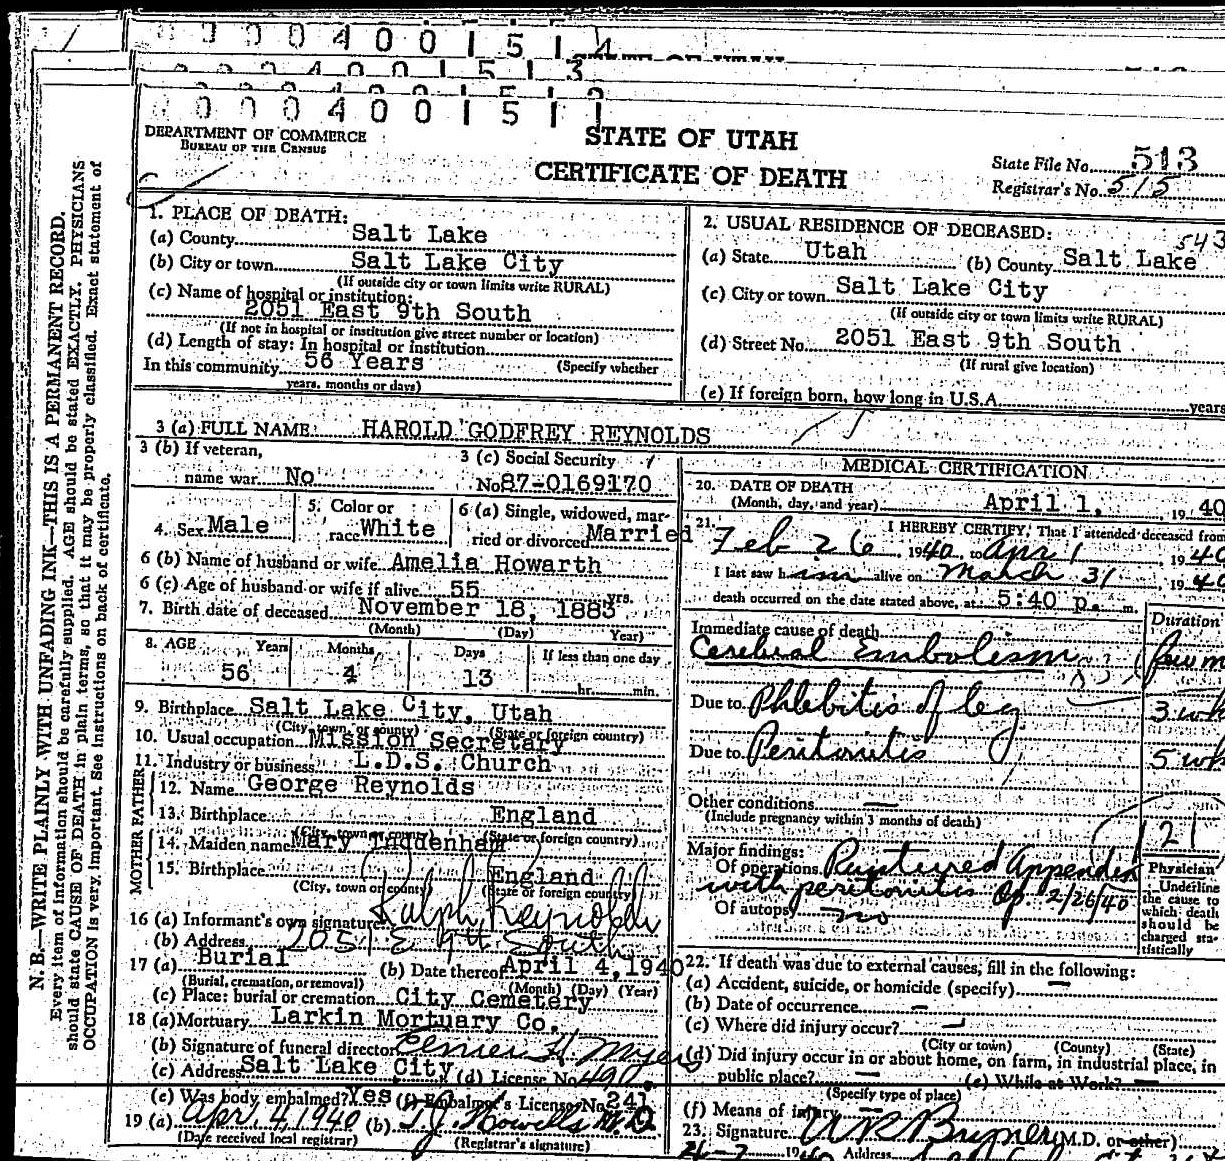 0 0 0 4 0 0 1 5 1 4
STATE OF UTAH
0 0 0 4 0 0 1 5 1 3
0 0 0 4 0 0 1 5 1
DEPARTMENT OF COMMERCE
BUREAU OF THE CENSUS
STATE OF UTAH
CERTIFICATE OF DEATH
State File No. 513
Registrar's No. 515
N. B.—WRITE PLAINLY WITH UNFADING INK—THIS IS A PERMANENT RECORD.
Every item of information should be carefully supplied. AGE should be stated EXACTLY. PHYSICIANS
should state CAUSE OF DEATH in plain terms, so that it may be properly classified. Exact statement of
OCCUPATION is very important. See instructions on back of certificate.
1. PLACE OF DEATH:
(a) County Salt Lake
(b) City or town Salt Lake City
(If outside city or town limits write RURAL)
(c) Name of hospital or institution:
2051 East 9th South
(If not in hospital or institution give street number or location)
(d) Length of stay: In hospital or institution
In this community 56 Years (Specify whether
years, months or days)
2. USUAL RESIDENCE OF DECEASED: 543
(a) State Utah (b) County Salt Lake
(c) City or town Salt Lake City
(If outside city or town limits write RURAL)
(d) Street No. 2051 East 9th South
(If rural give location)
(e) If foreign born, how long in U.S.A. years
3 (a) FULL NAME: HAROLD GODFREY REYNOLDS
3 (b) If veteran,
name war No
3 (c) Social Security
No. 87-0169170
4. Sex Male
5. Color or
race White
6 (a) Single, widowed, mar-
ried or divorced Married
6 (b) Name of husband or wife Amelia Howarth
6 (c) Age of husband or wife if alive 55 yrs.
7. Birth date of deceased November 18, 1883
(Month) (Day) Year)
8. AGE Years Months Days If less than one day
56 4 13 hr. min.
9. Birthplace Salt Lake City, Utah
(City, town, or county) (State or foreign country)
10. Usual occupation Mission Secretary
11. Industry or business L.D.S. Church
FATHER
12. Name George Reynolds
13. Birthplace England
(City, town or county) (State or foreign country)
MOTHER
14. Maiden name Mary Tuddenham
15. Birthplace England
(City, town or county) (State or foreign country)
16 (a) Informant's own signature Ralph Reynolds
(b) Address 2051 E 9th South
17 (a) Burial (b) Date thereof April 4, 1940
(Burial, cremation, or removal) (Month) (Day) (Year)
(c) Place: burial or cremation City Cemetery
18 (a) Mortuary Larkin Mortuary Co.
(b) Signature of funeral director H. Myers
(c) Address Salt Lake City (d) License No. 490
(e) Was body embalmed? Yes (f) Embalmer's License No. 241
19 (a) Apr. 4, 1940 (b) T.J. Howells M.D.
(Date received local registrar) (Registrar's signature)
MEDICAL CERTIFICATION
20. DATE OF DEATH
(Month, day, and year) April 1, 19 40
21. I HEREBY CERTIFY, That I attended deceased from
Feb 26, 1940, to Apr 1 19 40
I last saw him alive on March 31 19 40
death occurred on the date stated above, at 5:40 p. m.
Duration
Immediate cause of death
Cerebral Embolism few m
Due to Phlebitis of leg 3 wk
Due to Peritonitis 5 wk
Other conditions —
(Include pregnancy within 3 months of death)
121
Major findings:
Of operations Ruptured Appendix
with peritonitis Op. 2/26/40
Of autopsy no
Physician
Underline
the cause to
which death
should be
charged sta-
tistically
22. If death was due to external causes, fill in the following:
(a) Accident, suicide, or homicide (specify) —
(b) Date of occurrence —
(c) Where did injury occur? —
(City or town) (County) (State)
(d) Did injury occur in or about home, on farm, in industrial place, in
public place? — (e) While at Work? —
(Specify type of place)
(f) Means of injury
23. Signature W R (M.D. or other)
1940 Address